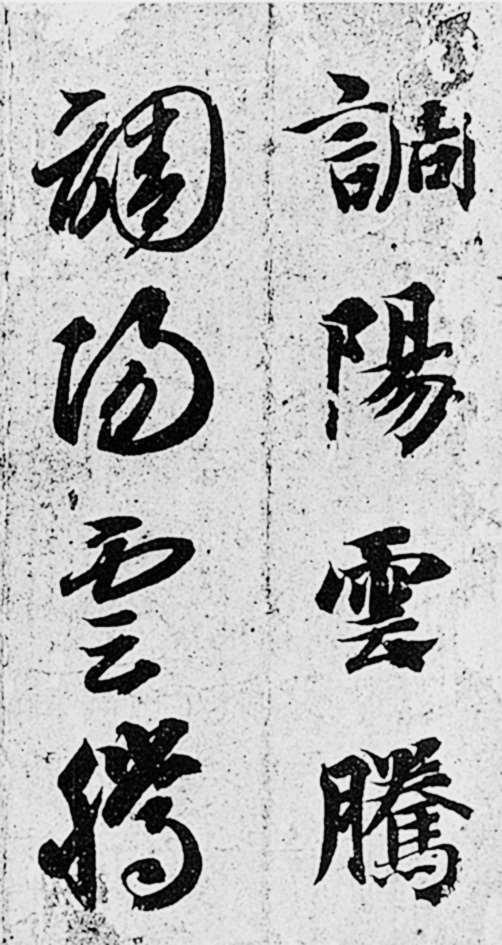 調陽雲騰
調陽雲騰